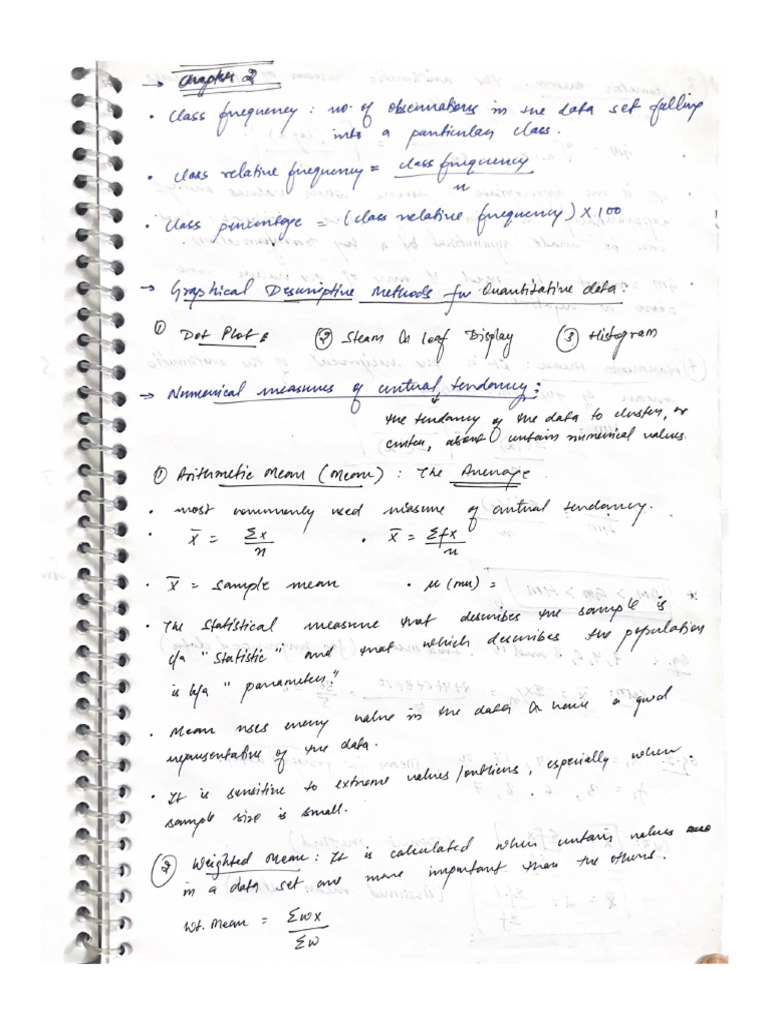 → Chapter 2
• Class frequency : no. of observations in the data set falling
into a particular class.
• Class relative frequency = class frequency / n
• Class percentage = (class relative frequency) × 100
→ Graphical Descriptive Methods for Quantitative data:
① Dot Plots ② Steam & leaf Display ③ Histogram
→ Numerical measures of central tendancy:
the tendancy of the data to cluster, or
center, about certain numerical values.
① Arithmetic Mean (Mean) : The Average
• most commonly used measure of central tendancy.
• x̄ = Σx / n • x̄ = Σfx / n
• x̄ = sample mean • μ (mu) =
• The statistical measure that describes the sample is
c/a "statistic" and that which describes the population
is k/a "parameter."
• Mean uses every value in the data & hence a good
representative of the data.
• It is sensitive to extreme values/outliers, especially when
sample size is small.
② Weighted Mean : It is calculated when certain values
in a data set are more important than the others.
wt. Mean = Σwx / Σw